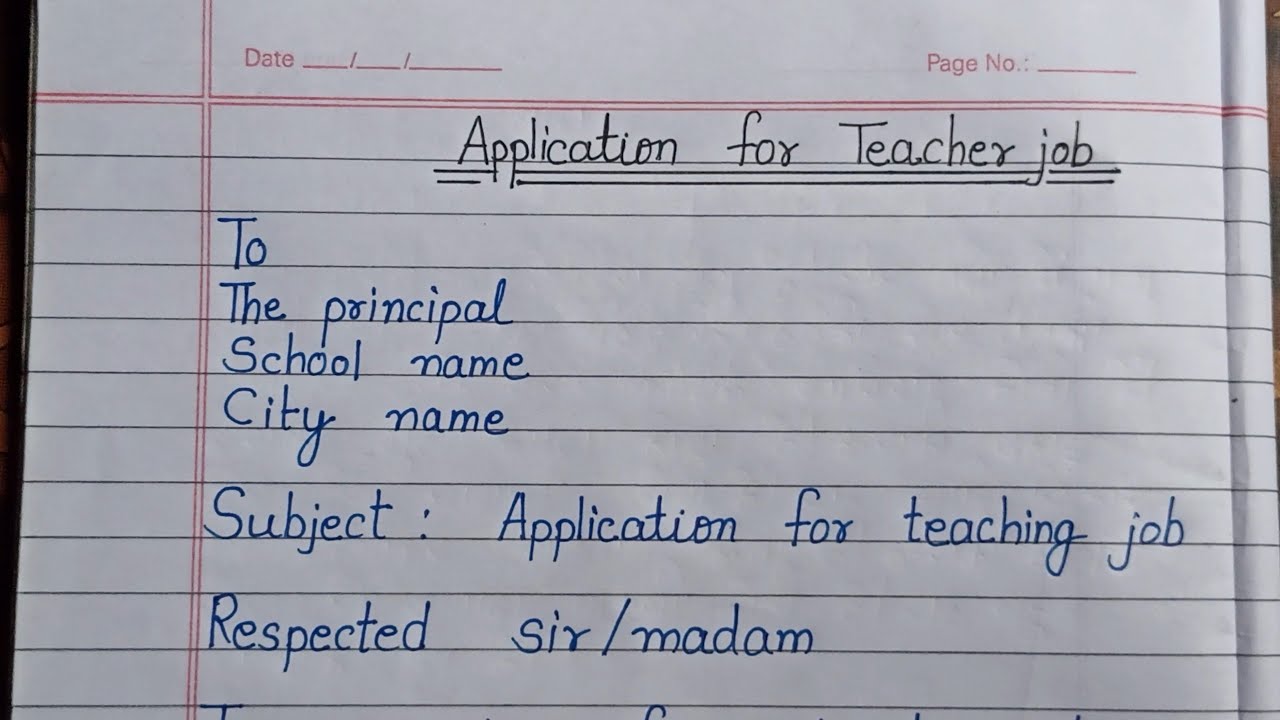 Date ___/___/______ Page No.: ______
Application for Teacher job
To
The principal
School name
City name
Subject : Application for teaching job
Respected sir/madam